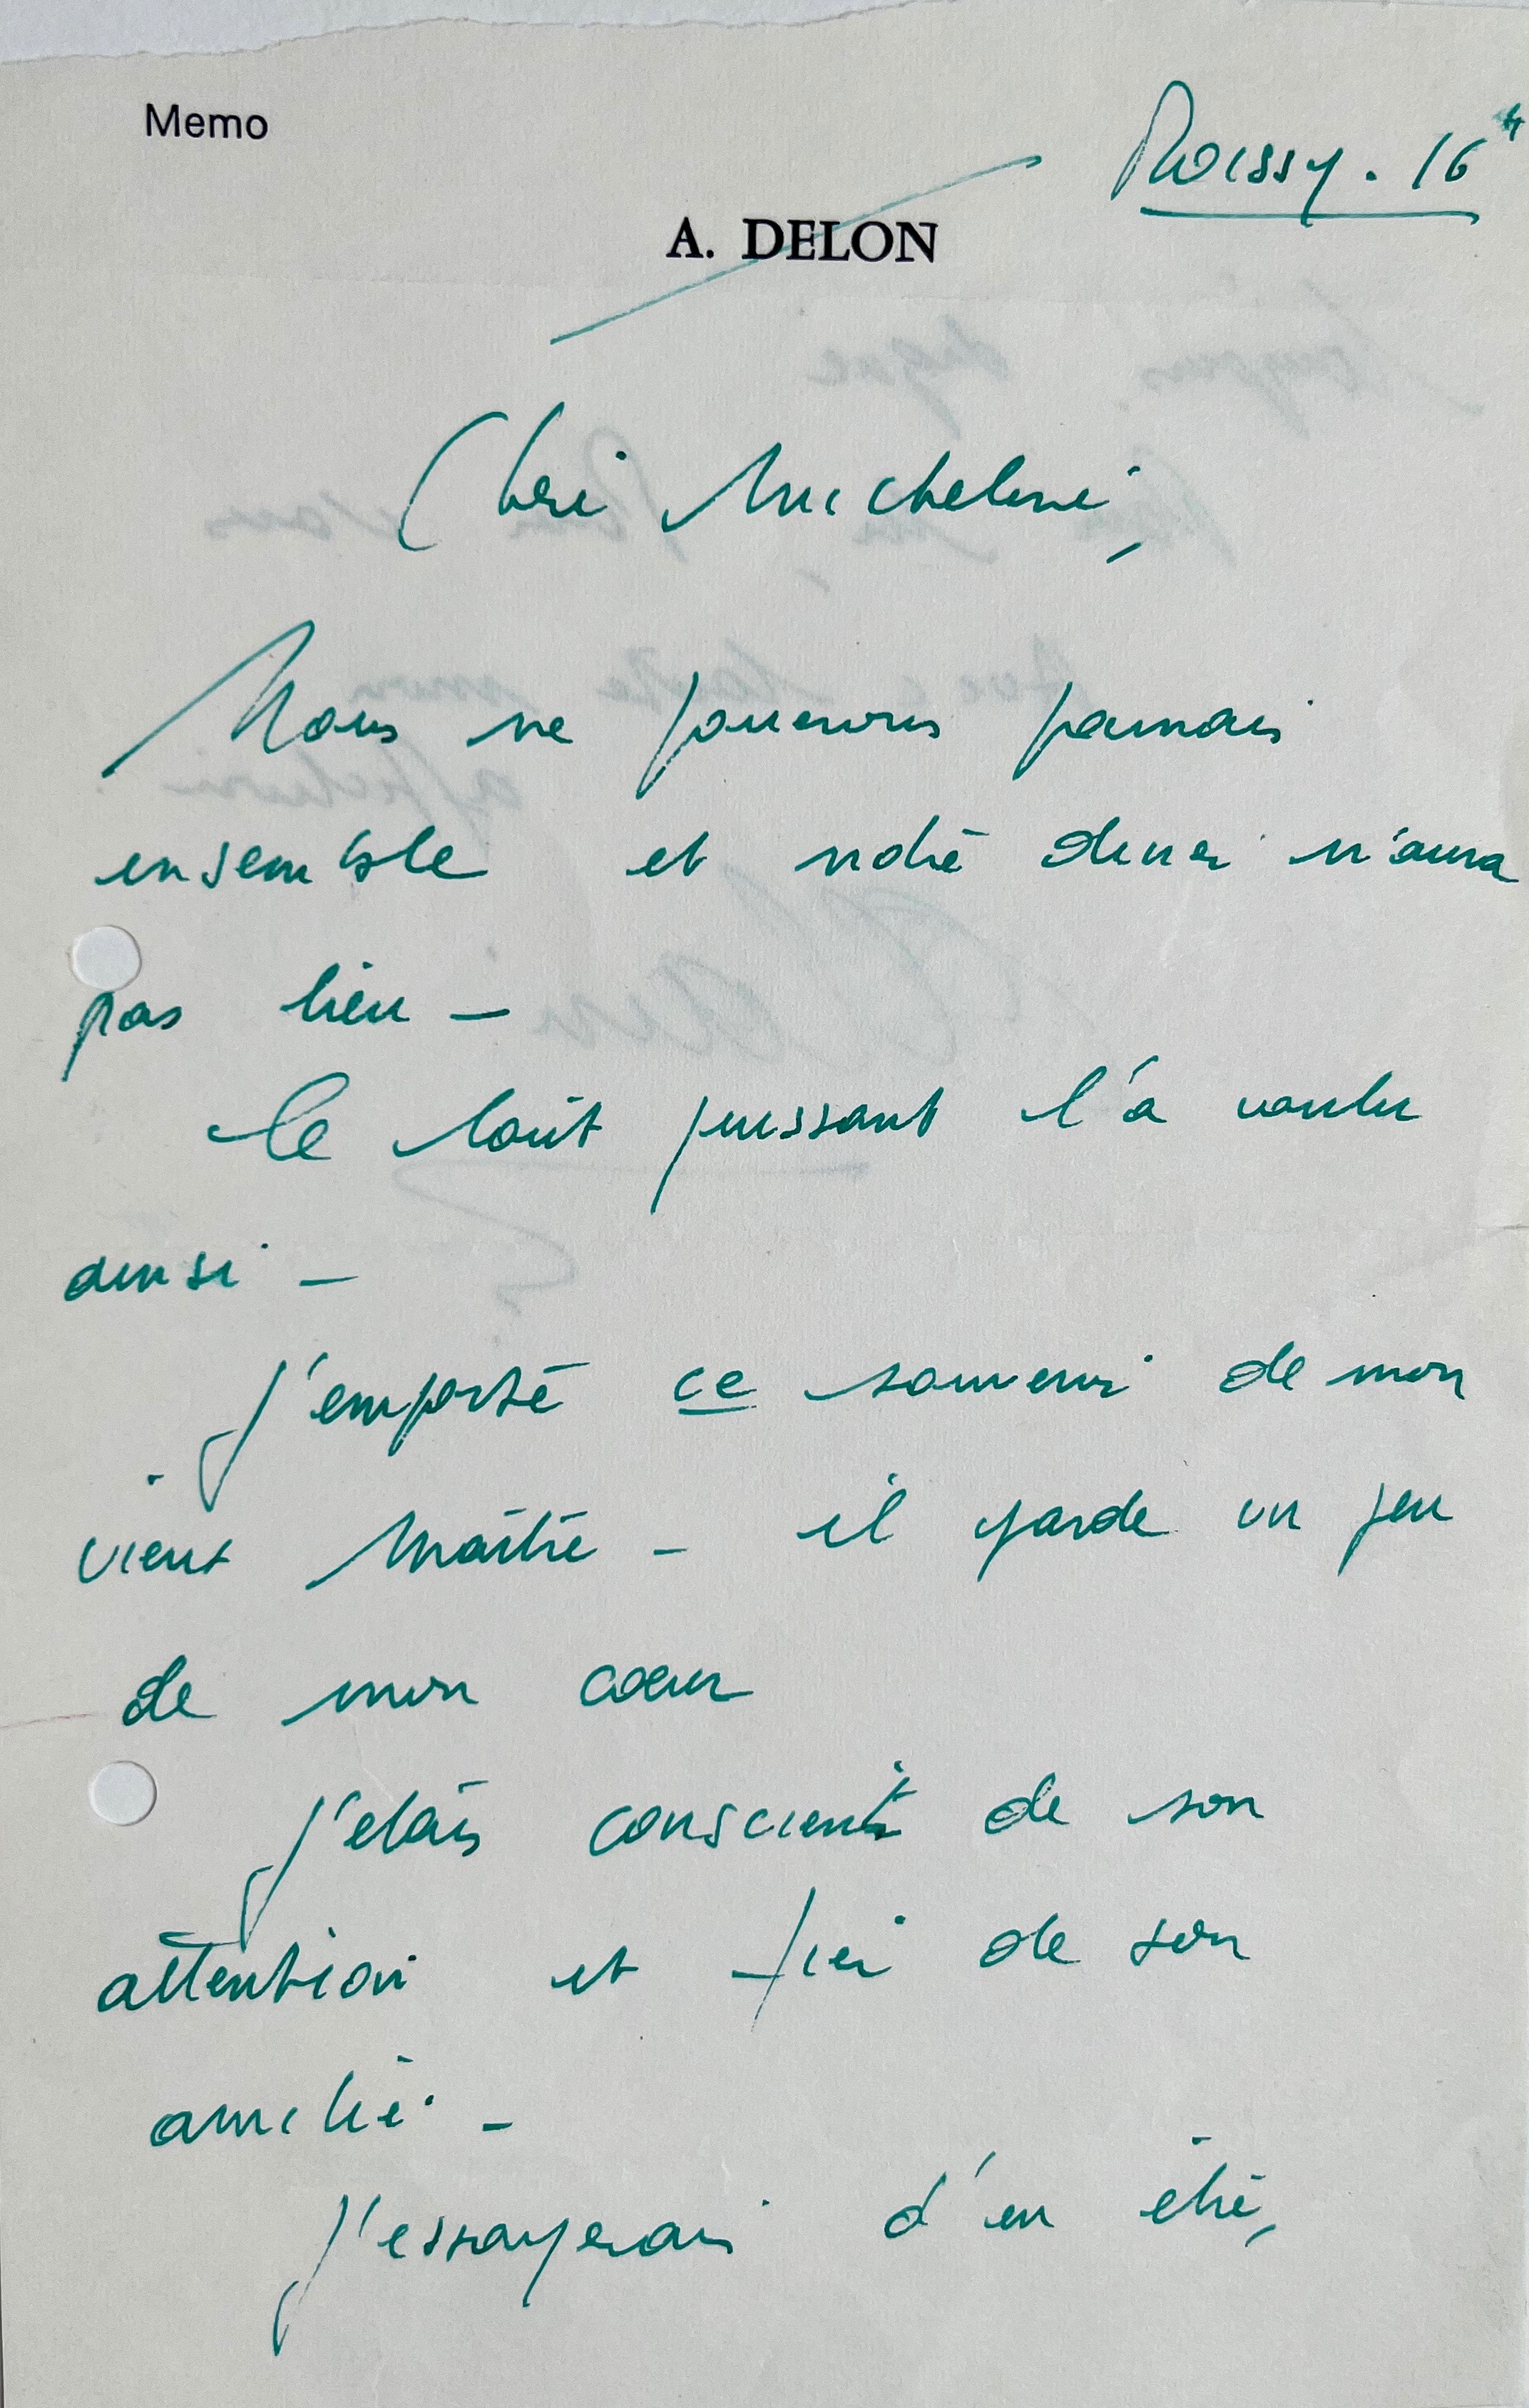 Memo
Roissy. 16 h
A. DELON
Chère Micheline,
Nous ne jouerons jamais
ensemble et notre diner n'aura
pas lieu –
Le tout puissant l'a voulu
ainsi –
J'emporte ce souvenir de mon
vieux Maître – il garde un peu
de mon cœur
J'étais conscient de son
attention et fier de son
amitié. –
J'essayerai d'en être,